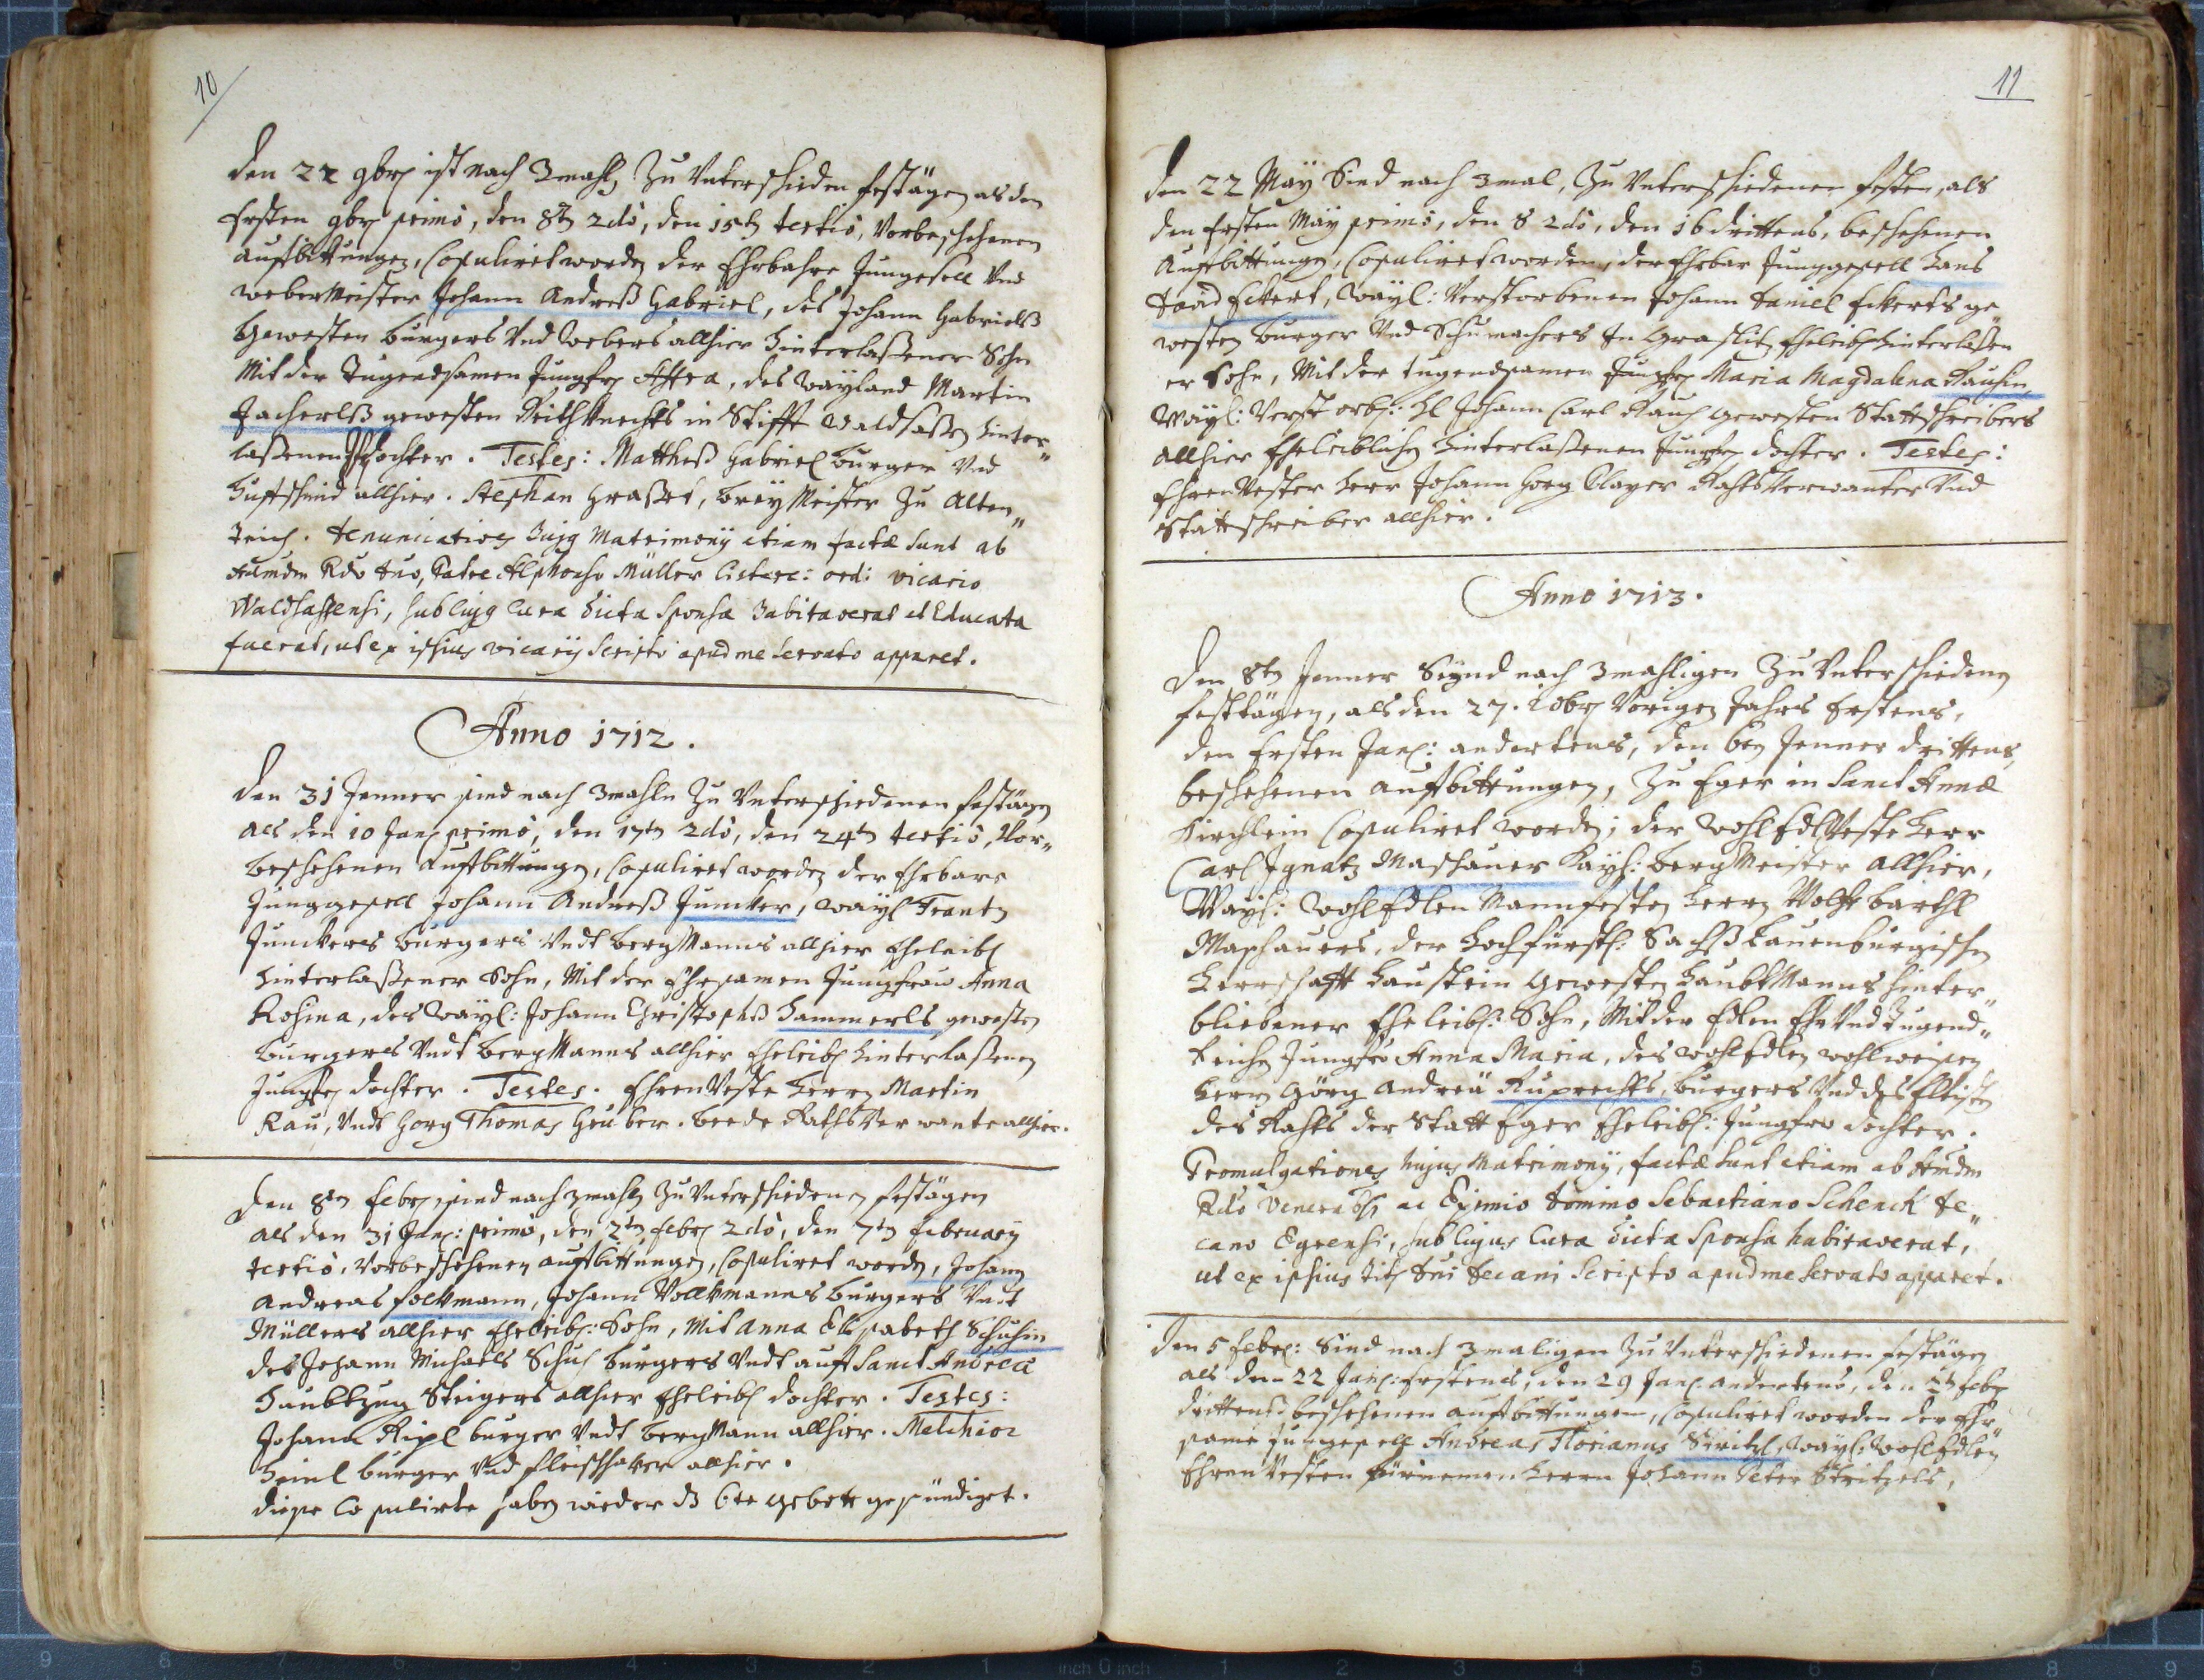 10
den 22 9br ist nach 3mahl Zu Unterschieden festägen als den
Ersten 9br primo, den 8t 2do, den 15t tertio, Vorbeschehenen
auffbittungen, Copuliret worden der Ehrbahre Jungesell Und
weber Meister Johann Andreß Gabriel, des Johann Gabrielß
gewesten burgers Und webers allhier hinterlaßener Sohn
Mit der Tugendsamen Jungfr Affra, des wayland Martin
Zacherlß gewesten Reithknechts in Stifft Waldsaßen hinter„
laßenen dochter. Testes: Mattheß Gabriel burger Und
huffschmid allhier. Stephan Graßel, breÿ Meister zu Alten„
Teich. denunciationes huig Matrimonÿ etiam factæ sunt ab
Admdm Rdo dno, Patre Alphonso Müller Cisterc: ord: vicario
Waldsassensi, sub cuig cura dicta sponsa habitaverat et Educata
fuerat, ut ex ipsius vicarÿ scripto apud me servato apparet.
Anno 1712.
den 31 Jenner sind nach 3mahln zu Unterschiedenen festägen
als den 10 Jan primo, den 17tn 2do, den 24tn tertio, Vor„
beschehenen Auffbittungen, Copuliret worden der Ehrbare
Junggesell Johann Andreß Juncker, wayl Frantz
Junckers burgers Undt bergManns allhier Eheleibl
hinterlaßener Sohn, Mit der Ehrsamen Jungfraw Anna
Rosina, des wayl: Johann Christophß Hammerls gewesten
burgers Undt bergManns allhier Eheleibl hinterlaßenen
Jungfr dochter. Testes. EhrenVeste Herrn Martin
Rau, Undt Georg Thomas Gruber. beede RathsVerwante allhier.
den 8tn febr sind nach 3mahl zu Unterschiedenen festägen
als den 31 Jan: primo, den 2tn febr 2do, den 7tn februarÿ
tertio, Vorbeschehenen auffbittungen, Copuliret worden, Johann
Andreas folkmann, Johann Vollkmanns burgers Undt
Müllers allhier Eheleibl: Sohn, Mit Anna Elisabeth Schuhin
des Johann Michaels Schuh burgers Undt auff Sanct Andreæ
Haubtzug Steigers allhier Eheleibl dochter. Testes:
Johann Ripl burger Undt bergMann allhier. Melchior
Heinl burger Und fleischhaker allhier.
diese Copulirte haben wieder dz 6te gebott gesündiget.
11
den 22 Maÿ Sind nach 3mal, Zu Unterschiedenen festen, als
den Ersten Maÿ primo, den 8 2do, den 16 drittens, beschehenen
Auffbittungen, Copuliret worden, der Ehrbar Junggesell Hans
Eckert, wayl: Verstorbenen Johann Daniel Eckerts ge„
westen burger Und Schumachers in Graslitz Eheleibl hinterlaßen
er Sohn, Mit der tugendsamen Jungfr Maria Magdalena Rauhin,
wayl: Verstorb: Johann Carl Rauh gewesten Stattschreibers
allhier Eheleiblichen hinterlaßenen Jungfr dochter. Testes:
EhrenVester Herr Johann Georg Clayer RahtsVerwanter Und
Stattschreiber allhier.
Anno 1713.
den 8tn Jenner Seÿnd nach 3mahligen Zu Unterschiedenen
festtägen, als den 27. Xbr Vorigen Jahrs Erstens,
den Ersten Jan: andertens, den 6ten Jenner drittens,
beschehenen auffbittungen, Zu Eger in Sanct Annæ
Kirchlein Copuliret worden; der WohlEdlVeste Herr
Carl Ignatz Maschauer Kaÿl: bergMeister allhier,
Wayl: WohlEdlen Mannfesten Herrn Wolff barthl
Maschauers, der Hochfürstl: Sachß Lauenburgischen
Herrschafft Haustein gewesten HaubtManns hinter„
bliebener Eheleibl: Sohn, Mit der Edlen Ehr Und Tugend„
reichen Jungfr Anna Maria, des wohlEdlen wohlweisen
Herrn Görg Andreä Ruprechts, burgers Und des
des Rahts der Statt Eger Eheleibl: Jungfrw dochter.
Promulgationes hujus Matrimonÿ, factæ sunt etiam ab Admdm
Rdo Venerabli ac Eximio domino Sebastiano Schenck de„
cano Egrensi, sub cujus cura dicta sponsa habitaverat,
ut ex ipsius tit dni decani scripto apud me servato apparet.
den 5 febr: Sind nach 3maligen zu Unterschiedenen festägen
als den 22 Jan: Erstens, den 29 Jan andertens, den 2t febr
drittens beschehenen auffbittungen, Copuliret worden der Ehr
same Jungesell Andreas Florianus Stritzl, Wayl: WohlEdlen
EhrenVesten fürnemen Herrn Johann Peter Stritzels,